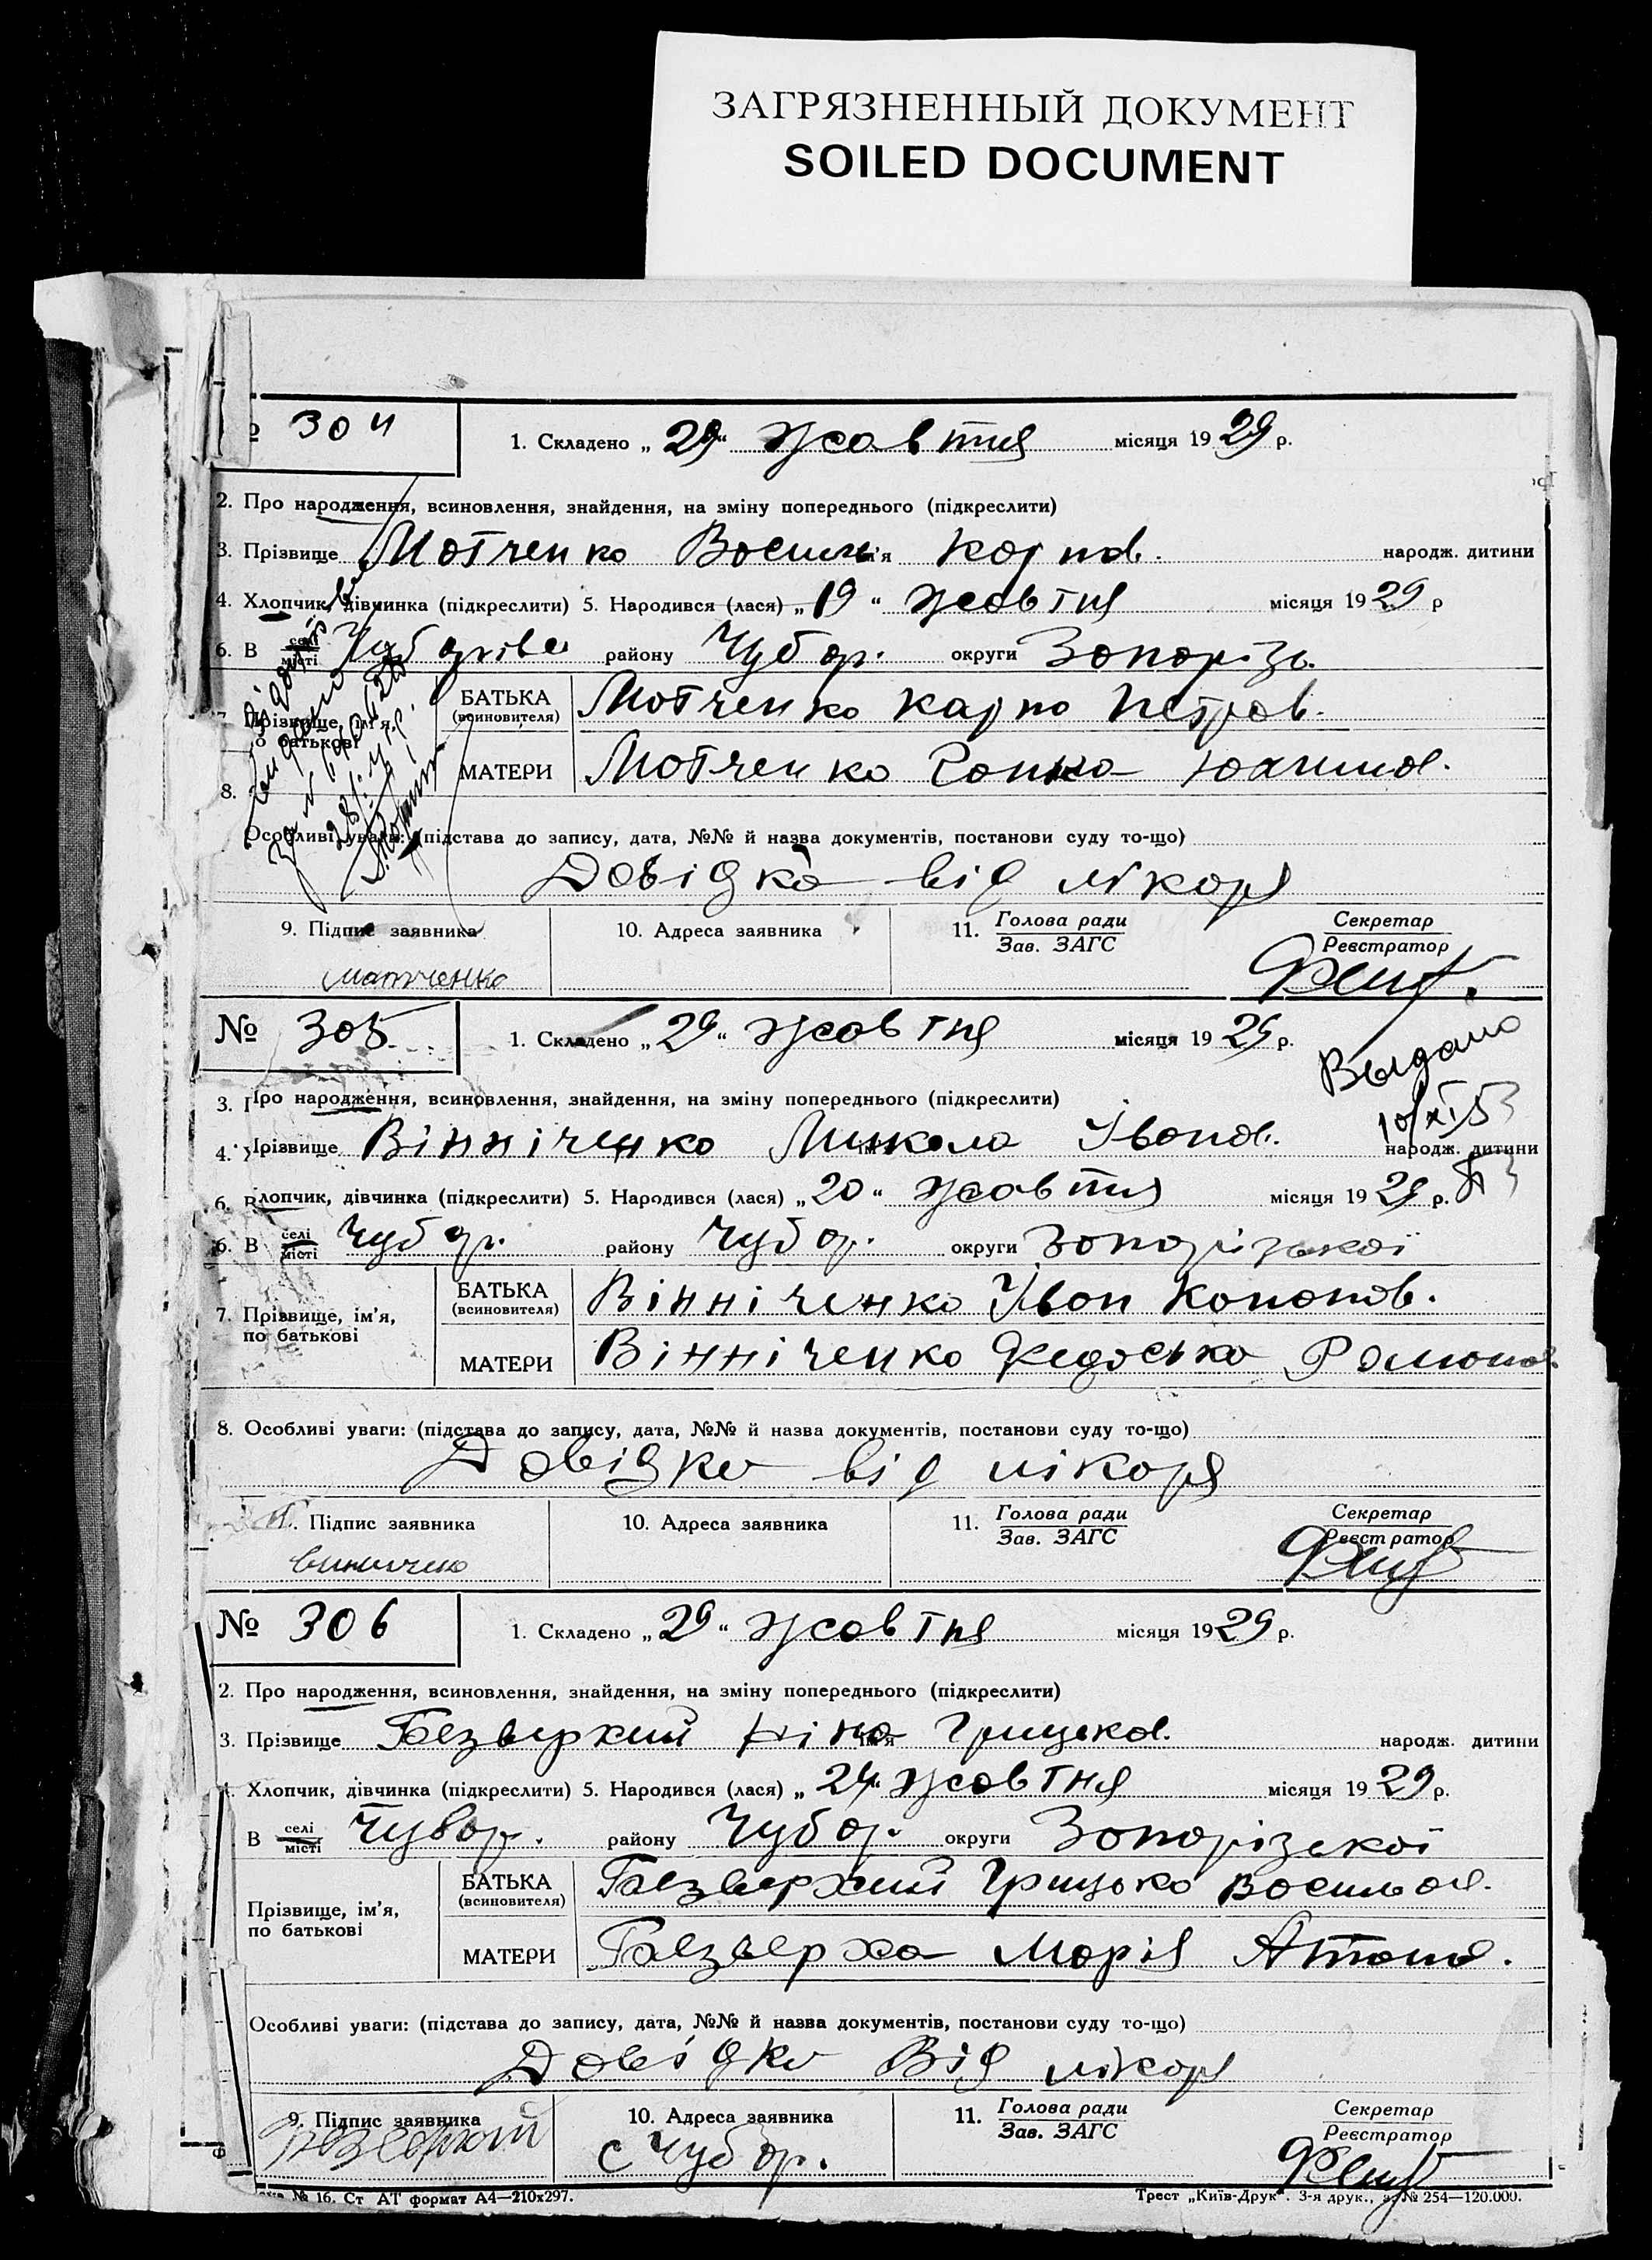 ЗАГРЯЗНЕННЫЙ ДОКУМЕНТ
SOILED DOCUMENT
304
1. Складено „29“ жовтня місяця 1929 р.
2. Про народження, всиновлення, знайдення, на зміну попереднього (підкреслити)
3. Прізвище Мотченко Василь ім'я Карпов. народж. дитини
4. Хлопчик, дівчинка (підкреслити) 5. Народився (лася) „19“ жовтня місяця 1929 р
6. В селі місті району Чубар. округи Запоріз.
7. Прізвище, ім'я, по батькові
БАТЬКА (всиновителя) Мотченко Карпо Петров.
МАТЕРИ Мотченко
8. Особливі уваги: (підстава до запису, дата, №№ й назва документів, постанови суду то-що)
Довідка від лікаря
9. Підпис заявника 10. Адреса заявника 11. Голова ради Зав. ЗАГС Секретар Реєстратор
матченко
№ 305
1. Складено „29“ жовтня місяця 1929 р.
Выдано
10/XI 53
3. Про народження, всиновлення, знайдення, на зміну попереднього (підкреслити)
4. Прізвище Вінніченко Микола ім'я Іванов. народж. дитини
6. Хлопчик, дівчинка (підкреслити) 5. Народився (лася) „20“ жовтня місяця 1929 р.
6. В селі місті Чубар. району Чубар. округи Запорізької
7. Прізвище, ім'я, по батькові
БАТЬКА (всиновителя) Вінніченко Іван Кононов.
МАТЕРИ Вінніченко Федоська Романов.
8. Особливі уваги: (підстава до запису, дата, №№ й назва документів, постанови суду то-що)
Довідка від лікаря
Підпис заявника 10. Адреса заявника 11. Голова ради Зав. ЗАГС Секретар Реєстратор
№ 306
1. Складено „29“ жовтня місяця 1929 р.
2. Про народження, всиновлення, знайдення, на зміну попереднього (підкреслити)
3. Прізвище Безверхий Ніна ім'я Грицьков. народж. дитини
4. Хлопчик, дівчинка (підкреслити) 5. Народився (лася) „24“ жовтня місяця 1929 р.
В селі місті Чубар. району Чубар. округи Запорізскої
Прізвище, ім'я, по батькові
БАТЬКА (всиновителя) Безверхий Грицько Васильов.
МАТЕРИ Безверха Марія Антонов.
Особливі уваги: (підстава до запису, дата, №№ й назва документів, постанови суду то-що)
Довідка Від лікаря
9. Підпис заявника 10. Адреса заявника 11. Голова ради Зав. ЗАГС Секретар Реєстратор
Безверхий с Чубар.
№ 16. Ст АТ формат А4—210х297. Трест „Київ-Друк“. 3-я друк., з. № 254—120.000.